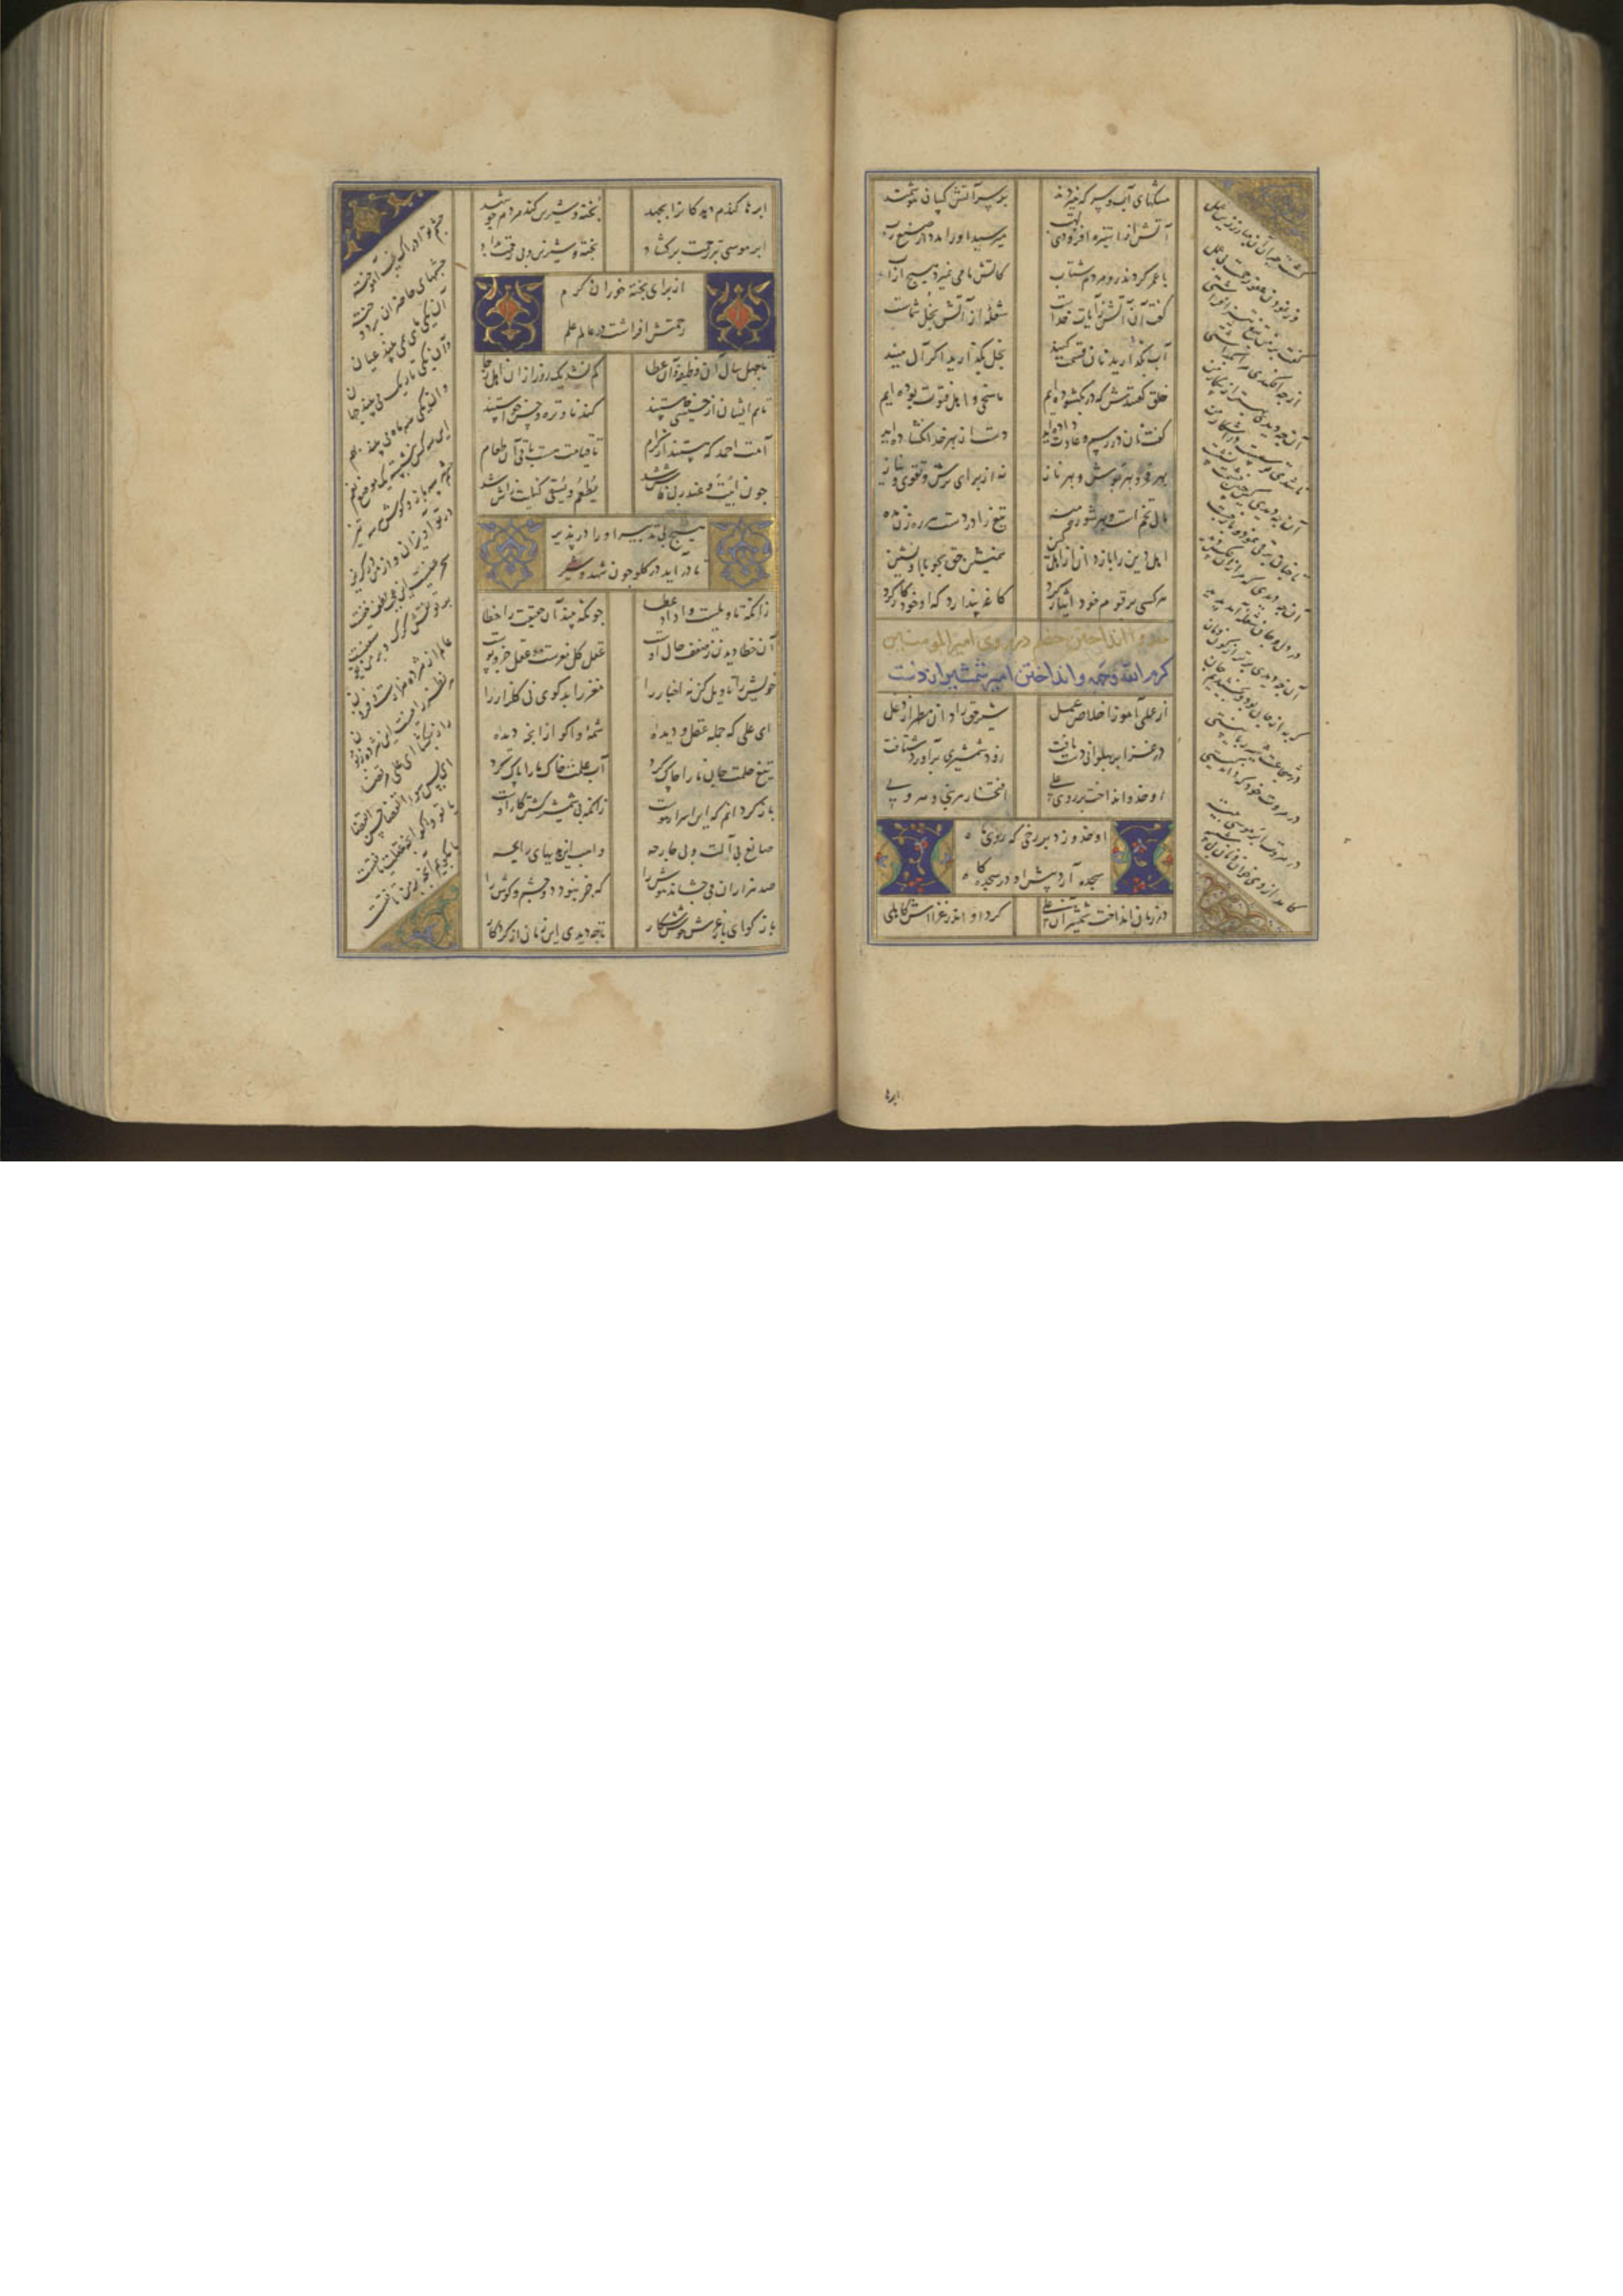 مشکهای آب و سرکه میزدند
بر سر آتش کسان هوشمند
آتش از استیزه افزودی لهب
میرسید او را مدد از صنع رب
با عمر کردند رو مردم شتاب
کاتش ما می نمیرد هیچ از آب
گفت آن آتش ز آیات خداست
شعله از آتش بخل شماست
آب بگذارید نان قسمت کنید
بخل بگذارید اگر آل منید
خلق گفتندش که در بگشوده‌ایم
ما سخی و اهل فتوت بوده‌ایم
گفت نان در رسم و عادت داده‌اید
دست از بهر خدا نگشاده‌اید
بهر فخر و بهر بوش و بهر ناز
نه از برای ترس و تقوی و نیاز
مال تخم است و بهر شوره منه
تیغ را در دست هر ره زن مده
اهل دین را باز دان از اهل کین
همنشین حق بجو با او نشین
هر کسی بر قوم خود ایثار کرد
کاغه پندارد که او خود کار کرد
خدو انداختن خصم در روی امیر المومنین
کرم الله وجهه و انداختن امیر شمشیر از دست
از علی آموز اخلاص عمل
شیر حق را دان مطهر از دغل
در غزا بر پهلوانی دست یافت
زود شمشیری برآورد و شتافت
او خدو انداخت بر روی علی
افتخار هر نبی و هر ولی
او خدو زد بر رخی که روی ماه
سجده آرد پیش او در سجده‌گاه
در زمان انداخت شمشیر آن علی
کرد او اندر غزااش کاهلی
گشت حیران آن مبارز زین عمل
وز نمودن عفو و رحمت بی محل
گفت بر من تیغ تیز افراشتی
از چه افکندی مرا بگذاشتی
آن چه دیدی بهتر از پیکار من
تا شدی تو سست در اشکار من
آن چه دیدی که چنین خشمت نشست
تا چنان برقی نمود و باز جست
آن چه دیدی که مرا زان عکس دید
در دل و جان شعله آمد پدید
آن چه دیدی برتر از کون و مکان
که به از جان بود و بخشیدیم جان
در شجاعت شیر ربانیستی
در مروت خود که داند کیستی
در مروت ابر موسیی به تیه
کآمد از وی خوان و نان بی شبیه
ابرها
ابرها گندم دهد کانرا بجهد
پخته و شیرین کند مردم چو شهد
ابر موسی پر رحمت بر گشاد
پخته و شیرین و بی زحمت بداد
از برای پخته خوران کرم
رحمتش افراشت در عالم علم
تا چهل سال آن وظیفه و آن عطا
کم نشد یک روز از آن اهل رجا
تا هم ایشان از خسیسی خاستند
گندنا و تره و خس خواستند
امت احمد که هستند از کرام
تا قیامت هست باقی آن طعام
چون ابیت عند ربی فاش شد
یطعم و یسقی کنایت ز آش شد
هیچ بی تدبیر او را در پذیر
تا در آید در گلو چون شهد و شیر
زانکه تاویلست واداد عطا
چونکه بیند آن حقیقت را خطا
آن خطا دیدن ز ضعف حال اوست
عقل کل مغزست و عقل جزو پوست
خویش را تاویل کن نه اخبار را
مغز را بد گوی نی گلزار را
ای علی که جمله عقل و دیده‌ای
شمه‌ای واگو از آنچه دیده‌ای
تیغ حلمت جان ما را چاک کرد
آب علمت خاک ما را پاک کرد
باز گو دانم که این اسرار هوست
زانکه بی شمشیر کشتن کار اوست
صانع بی آلت و بی جارحه
واهب این هدیه‌های رابحه
صد هزاران می چشاند هوش را
که خبر نبود دو چشم و گوش را
باز گو ای باز عرش خوش شکار
تا چه دیدی این زمان از کردگار
چشم تو ادراک غیب آموخته
چشمهای حاضران بر دوخته
آن یکی ماهی همی بیند عیان
وان یکی تاریک می بیند جهان
وان یکی سه ماه می بیند بهم
این سه کس بنشسته یک موضع نعم
چشم هر سه باز و گوش هر سه تیز
در تو آویزان و از من در گریز
سحر عینست این عجب لطف خفیست
بر تو نقش گرگ و بر من یوسفیست
عالم ار هژده هزارست و فزون
هر نظر را نیست این هژده زبون
راز بگشا ای علی مرتضی
ای پس سوء القضا حسن القضا
یا تو واگو آنچه عقلت یافتست
یا بگویم آنچه بر من تافتست